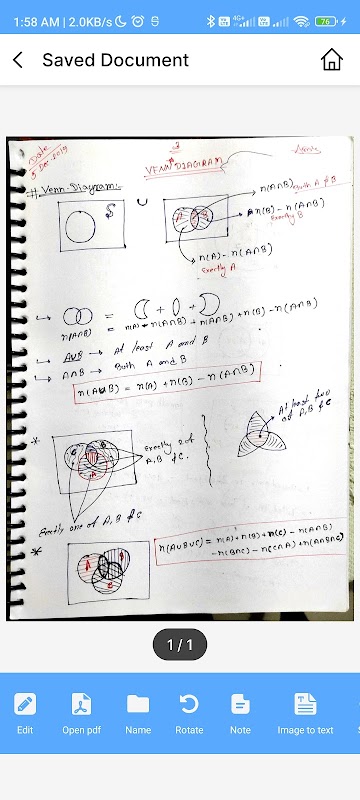 1:58 AM | 2.0KB/s
4G+
76
Saved Document
Date
5 Dec 2019
VENN DIAGRAM
# Venn-Diagram:-
S
U
n(A∩B) Both A & B
n(B) - n(A∩B)
Exactly B
n(A) - n(A∩B)
Exactly A
=
+ +
n(A∩B) = n(A) - n(A∩B) + n(A∩B) + n(B) - n(A∩B)
↳ A∪B → At least A and B
↳ A∩B → Both A and B
n(A∪B) = n(A) + n(B) - n(A∩B)
At least two
of A, B & C
*
Exactly 2 of
A, B & C.
Exactly one of A, B & C
*
A
B
C
n(A∪B∪C) = n(A) + n(B) + n(C) - n(A∩B)
- n(B∩C) - n(C∩A) + n(A∩B∩C)
1/1
Edit
Open pdf
Name
Rotate
Note
Image to text